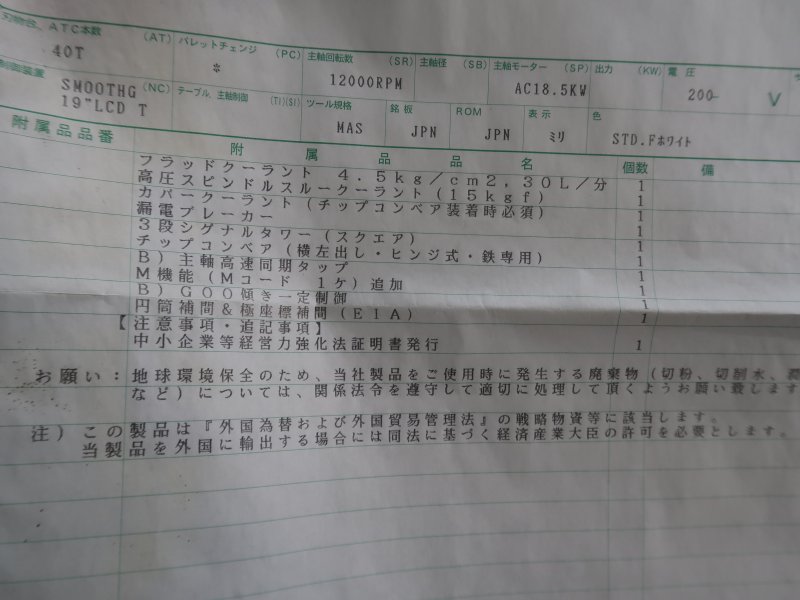 刃物台、ATC本数 (AT) パレットチェンジ (PC) 主軸回転数 (SR) 主軸径 (SB) 主軸モーター (SP) 出力 (KW) 電圧
40T * 12000RPM AC18.5KW 200 V
制御装置 (NC) テーブル、主軸制御 (TI)(SI) ツール規格 銘板 ROM 表示 色
SMOOTHG
19"LCD T MAS JPN JPN ミリ STD.Fホワイト
附属品品番 附属品品名 個数 備
フラッドクーラント 4.5kg/cm2,30L/分 1
高圧スピンドルスルークーラント(15kgf) 1
カバークーラント(チップコンベア装着時必須) 1
漏電ブレーカー 1
3段シグナルタワー(スクエア) 1
チップコンベア(横左出し・ヒンジ式・鉄専用) 1
B)主軸高速同期タップ 1
M機能(Mコード 1ケ)追加 1
B)G00傾き一定制御 1
円筒補間&極座標補間(EIA) 1
【注意事項・追記事項】
中小企業等経営力強化法証明書発行 1
お願い:地球環境保全のため、当社製品をご使用時に発生する廃棄物(切粉、切削水、
など)については、関係法令を遵守して適切に処理して頂くようお願い致します
注)この製品は『外国為替および外国貿易管理法』の戦略物資等に該当します。
当製品を外国に輸出する場合には同法に基づく経済産業大臣の許可を必要とします。